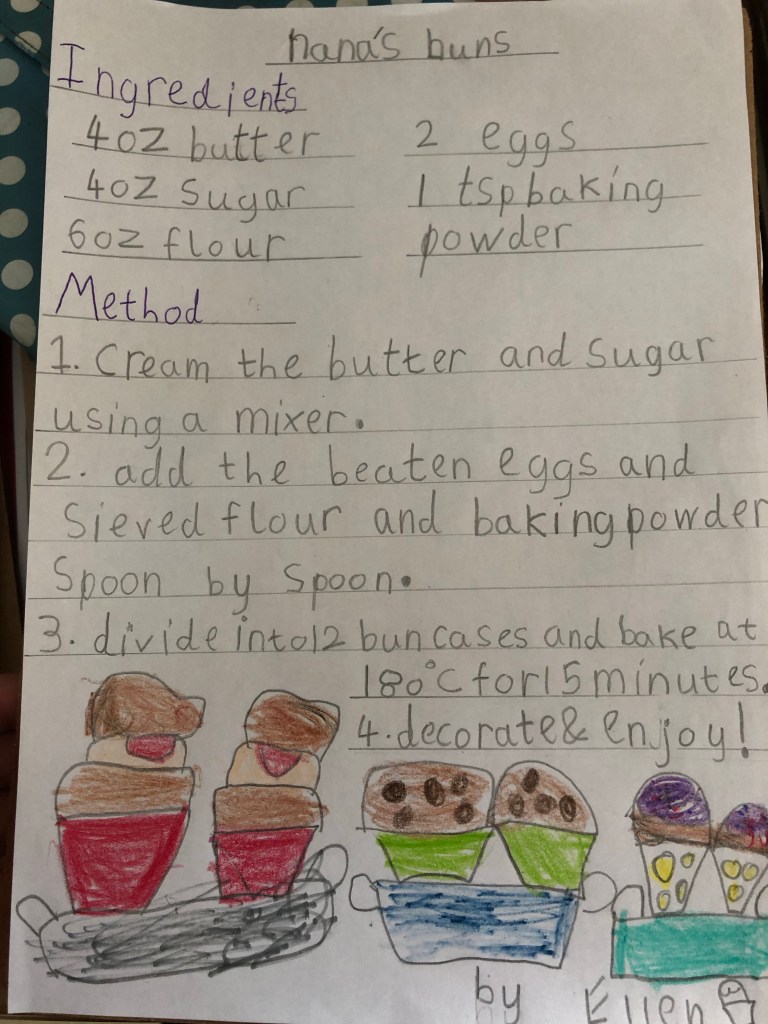 nana's buns
Ingredients
4oz butter
4oz sugar
6oz flour
2 eggs
1 tsp baking
powder
Method
1. Cream the butter and sugar
using a mixer.
2. add the beaten eggs and
Sieved flour and baking powder
Spoon by Spoon.
3. divide into 12 bun cases and bake at
180°C for 15 minutes.
4. decorate & enjoy!
by Ellen